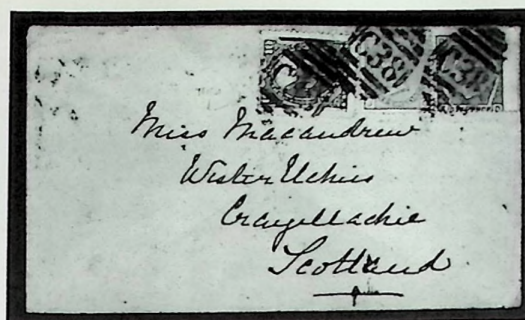 C38 C38
Miss Macandrew
Wester Elchies
Craigellachie
Scotland